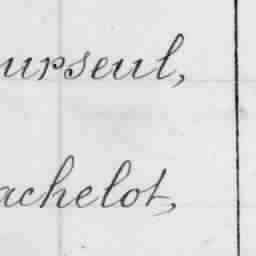 urseul,
achelot,